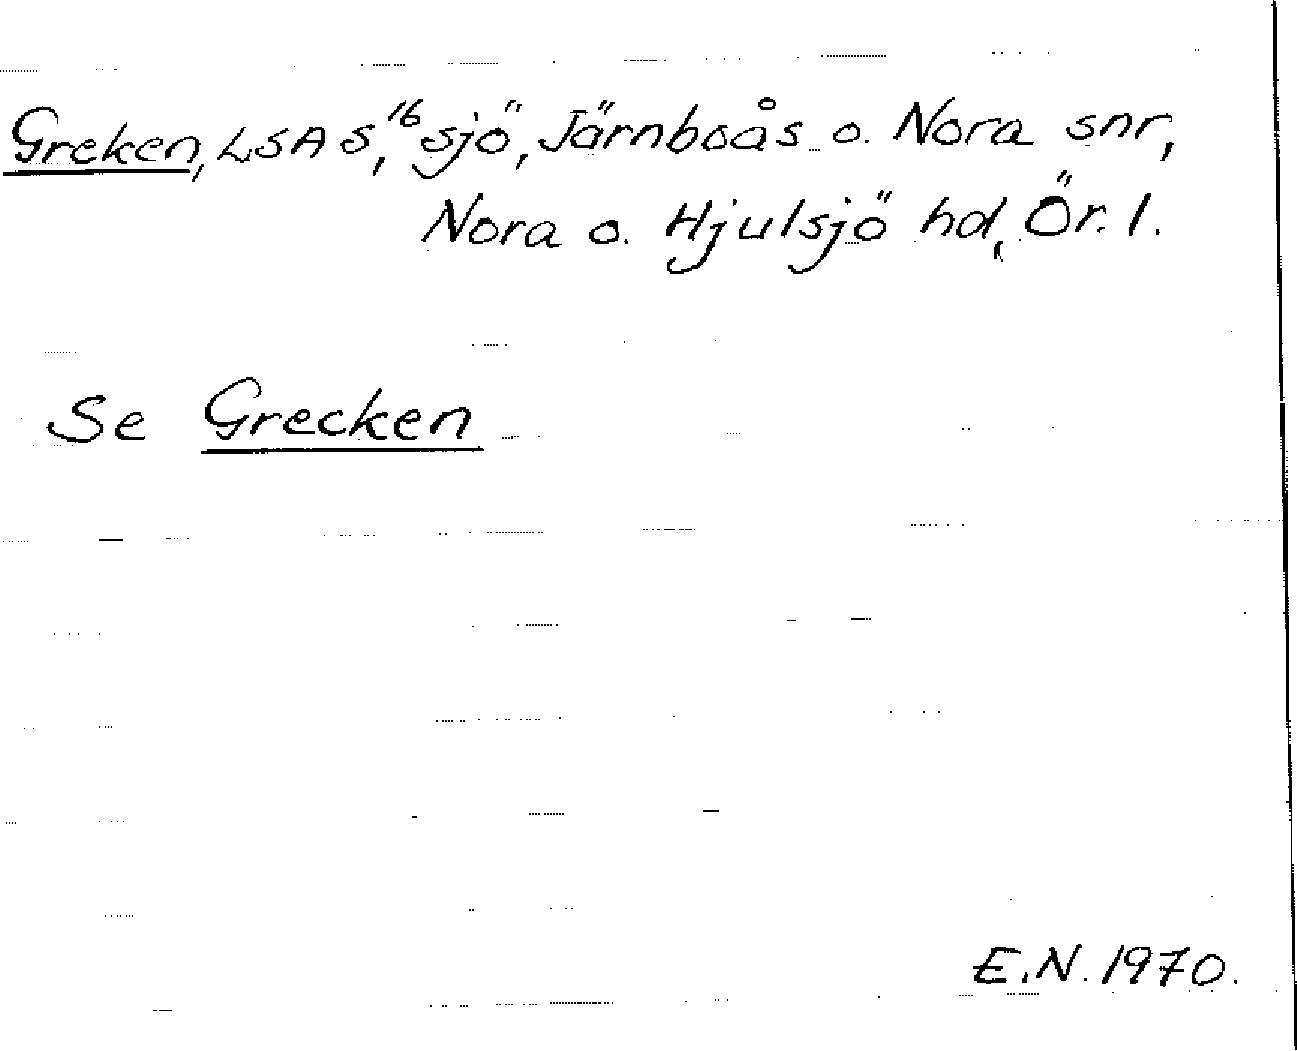 Greken, LSA S,¹⁶ sjö, Järnboås o. Nora snr,
Nora o. Hjulsjö hd, Ör. l.
Se Grecken
E.N. 1970.